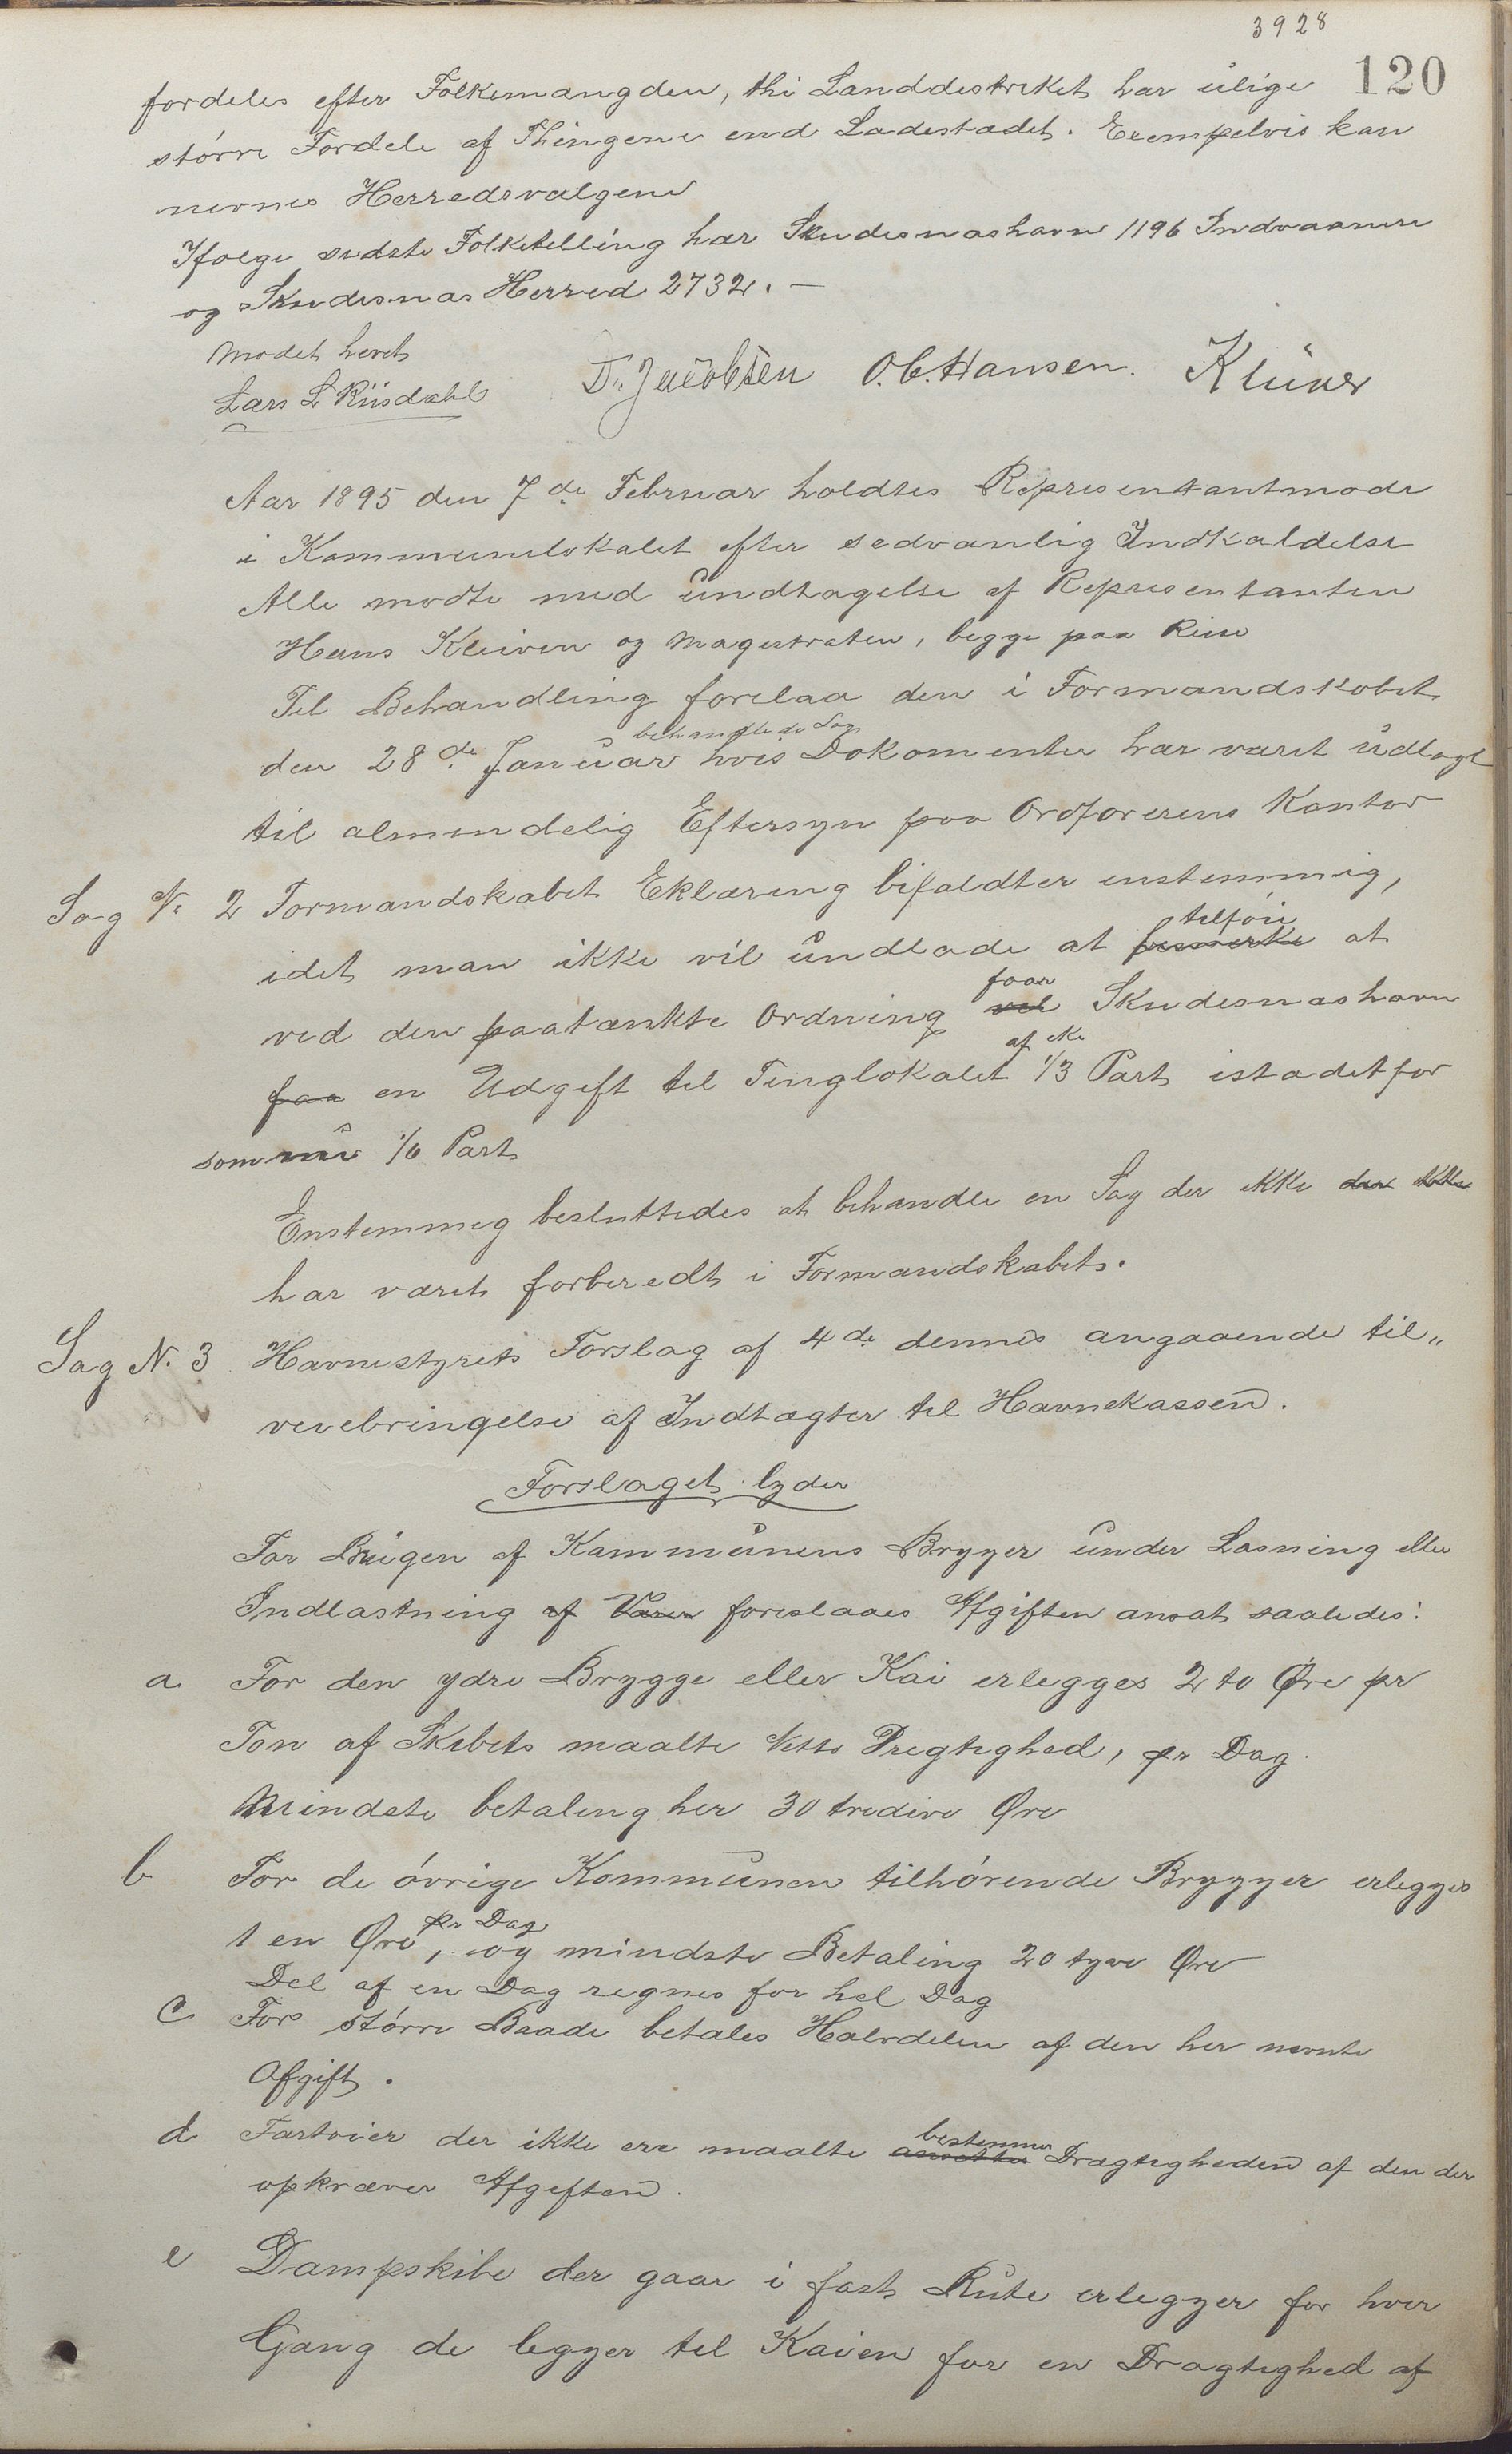 3928
120
fordeles efter Folkemængden, thi Landdistriktet har ulige
större Fordele af Thingene end Ladestædet. Exempelvis kan
nevnes Herredsvalgene
Ifolge sidste Folketelling har Skudesnæshavn 1196 Indvaanere
og Skudesnæs Herred 2732. —
Modet hevet
Lars L Riisdahl D. Jacobsen O. C. Hansen. Kluver
Aar 1895 den 7de Februar holdtes Representantmode
i Kommunelokalet efter sedvanlig Indkaldelse
Alle modte med undtagelse af Representanten
Hans Kleiven og Magistraten, begge paa Reise
Til Behandling forelaa den i Formandskabet
behandlede Sag
den 28de Januar hvis Dokomenter har været udlagt
til almindelig Eftersyn paa Ordforerens Kontor
Sag N. 2 Formandskabet Eklæring bifaldtes enstemmig,
tilföie
idet man ikke vil undlade at bemerke at
faar
ved den paatænkte Ordning vil Skudesnæshavn
af ca
faa en Udgift til Tinglokalet 1/3 Part istadetfor
som nu 1/6 Part
Enstemmig besluttedes at behandle en Sag der ikke der ikke
har været forberedt i Formandskabet.
Sag N. 3 Havnestyrets Forslag af 4de dennes angaaende til„
veiebringelse af Indtægter til Havnekassen.
Forslaget lyder
For Brugen af Kommunens Brygger under Losning eller
Indlastning af Varer foreslaaes Afgiften ansat saaledes:
a For den ydre Brygge eller Kai erlegges 2 to Øre pr
Ton af Skibets maalte Netto Dregtighed, pr Dag.
Mindste betaling her 30 tredive Øre
b For de övrige Kommunen tilhörende Brygger erlegges
pr Dag
1 en Øre, og mindste Betaling 20 tyve Øre
Del af en Dag regnes for hel Dag
c For större Baade betales Halvdelen af den her nevnte
Afgift.
bestemmer
d Fartoier der ikke ere maalte ansetter Drægtigheden af den der
opkræver Afgiften.
e Dampskibe der gaar i fast Rute erlegger for hver
Gang de legger til Kaien for en Drægtighed af